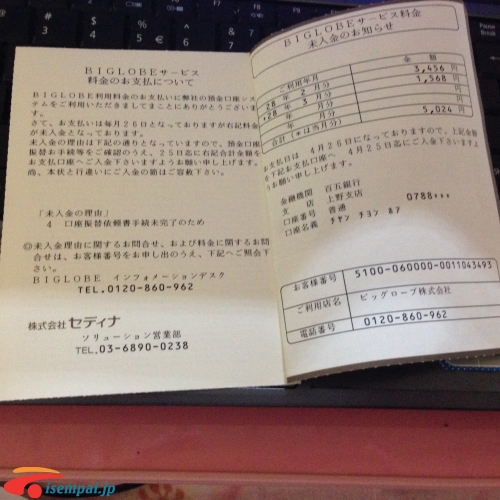 BIGLOBEサービス
料金のお支払について
BIGLOBE利用料金のお支払いに弊社の預金口座シス
テムをご利用いただきましてまことにありがとうございます。
さて、お支払いは毎月26日となっておりますが右記料金
が未入金となっております。
未入金の理由は下記の通りとなっていますので、預金口座
振替お手続等をご確認のうえ、25日迄に右記合計金額を
お支払口座へご入金下さいますようお願い申し上げます。
尚、本状と行違いにご入金の節はご容赦下さい。
「未入金の理由」
4 口座振替依頼書手続未完了のため
◎未入金理由に関するお問合せ、および料金に関するお問
合せは、お客様番号をお申し出のうえ、下記へご照会下
さい。
BIGLOBE インフォメーションデスク
TEL.0120-860-962
株式会社 セディナ
ソリューション営業部
TEL.03-6890-0238
BIGLOBEサービス料金
未入金のお知らせ
ご利用年月 金額
*28年 2月分 3,456円
*28年 3月分 1,568円
年 月分 円
合計(*は当月分) 5,024円
お支払日は 4月26日になっておりますので、上記金額
を下記お支払口座へ 4月25日迄にご入金下さいますよ
うお願い申し上げます。
金融機関 百五銀行
支店 上野支店
口座番号 普通 0788***
口座名義 チヤン チヨン
お客様番号 5100-060000-0011043493
ご利用店名 ビッグローブ株式会社
電話番号 0120-860-962
isempai.jp